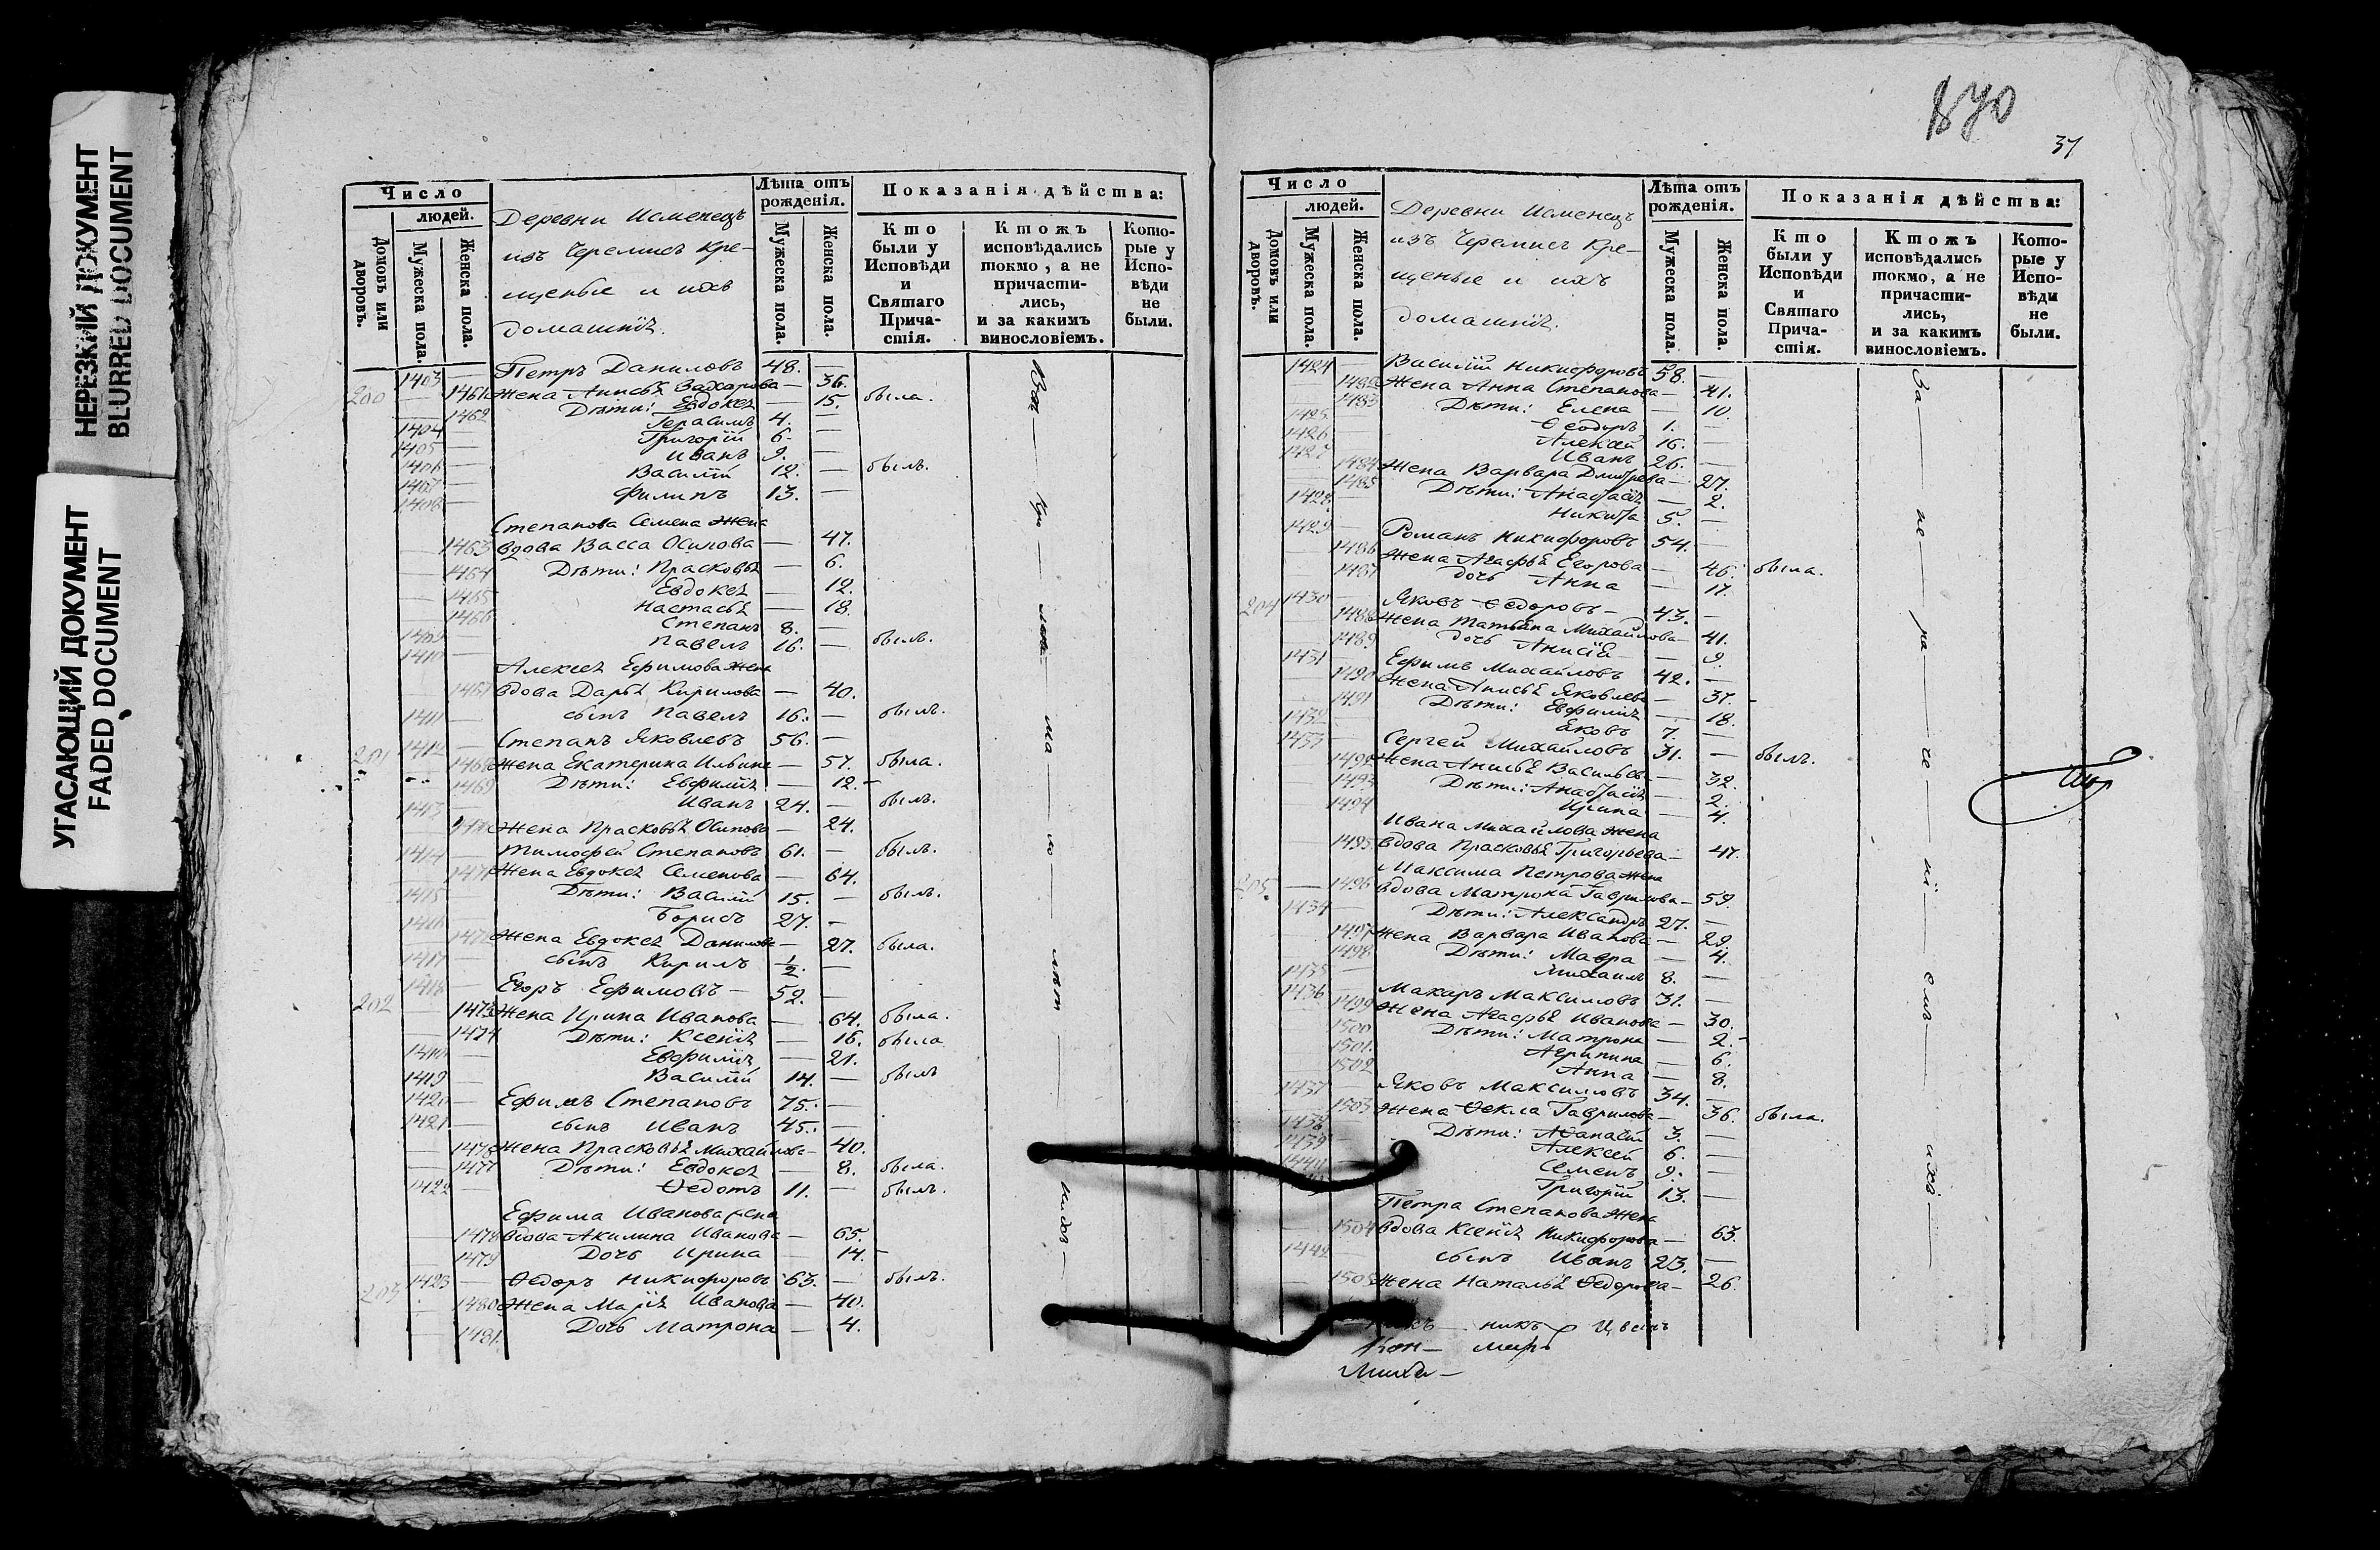 НЕРЕЗКИЙ ДОКУМЕНТ
BLURRED DOCUMENT
УГАСАЮЩИЙ ДОКУМЕНТ
FADED DOCUMENT
Число
людей.
Домовъ или дворовъ.
Мужеска пола.
Женска пола.
Деревни Исменецъ
изъ Черемисъ Кре-
щеные и ихъ
домашніе.
Лѣта отъ рожденія.
Мужеска пола.
Женска пола.
Показанія дѣйства:
Кто были у Исповѣди и Святаго Причастія.
Ктожъ исповѣдались токмо, а не причастились, и за какимъ винословіемъ.
Которые у Исповѣди не были.
1403 — Петръ Даниловъ 48. —
200 — 1461 Жена Анисья Захарова — 36. была.
1462 Дѣти: Евдокея — 15.
1404 — Герасимъ 4. —
1405 — Григорій 6. —
1406 — Иванъ 9. —
1407 — Василій 12. — былъ.
1408 — Филипъ 13. —
Степанова Семена Жена
— 1463 вдова Васса Осипова — 47.
— 1464 Дѣти: Прасковья — 6.
— 1465 Евдокея — 12.
— 1466 Настасья — 18.
1409 — Степанъ 8. —
1410 — Павелъ 16. — былъ.
Алексея Ефимова Жена
— 1467 вдова Дарья Кирилова — 40.
1411 — сынъ Павелъ 16. — былъ.
201 1412 — Степанъ Яковлевъ 56. —
1468 Жена Екатерина Ильина — 57. была.
1469 Дѣти: Евфимія — 12.
1413 Иванъ 24. — былъ.
1470 Жена Прасковья Осипова — 24.
1414 — Тимофей Степановъ 61. — былъ.
1471 Жена Евдокея Семенова — 64.
1415 — Дѣти: Василій 15. — былъ.
1416 — Борисъ 27. —
1472 Жена Евдокея Данилова — 27. была.
1417 — сынъ Кирилъ 1/2. —
1418 — Егоръ Ефимовъ — 52. —
202 — 1473 Жена Ирина Иванова — 64. была.
1474 Дѣти: Ксенія — 16. была
Евфимія — 21.
1419 — Василій 14. — былъ
1420 — Ефимъ Степановъ 75. —
1421 — сынъ Иванъ 45. —
— 1476 Жена Прасковья Михайлова — 40.
— 1477 Дѣти: Евдокея — 8. была.
1422 — Ѳедотъ 11. — былъ.
Ефима Иванова жена
— 1478 вдова Акилина Иванова — 65.
— 1479 Дочь Ирина — 14.
203 1423 — Ѳедоръ Никифоровъ 63. — былъ.
1480 Жена Марія Иванова — 40.
— 1481. Дочь Матрона — 4.
37
Число
людей.
Домовъ или дворовъ.
Мужеска пола.
Женска пола.
Деревни Исменецъ
изъ Черемисъ Кре-
щеные и ихъ
домашніе.
Лѣта отъ рожденія.
Мужеска пола.
Женска пола.
Показанія дѣйства:
Кто были у Исповѣди и Святаго Причастія.
Ктожъ исповѣдались токмо, а не причастились, и за какимъ винословіемъ.
Которые у Исповѣди не были.
1424 Василій Никифоровъ 58. —
1482 Жена Анна Степанова — 41.
1483 Дѣти: Елена — 10.
1425. Ѳеодоръ 1. —
1426 Алексей 16. —
1427 Иванъ 26. —
1484 Жена Варвара Дмитрева — 27.
1485 Дѣти: Анастасія — 2.
1428. Никита 5. —
1429 — Романъ Никифоровъ 54. —
1486 Жена Агафья Егорова — 46. была.
1487 дочь Анна — 17.
204 1430 — Яковъ Ѳедоровъ — 43. —
1488 Жена Татьяна Михайлова — 41.
1489 дочь Анисія — 9.
1431 Ефимъ Михайловъ 42. —
1490 Жена Анисья Яковлева — 37.
1491 Дѣти: Евфимія — 18.
1432 Яковъ 7. —
1433 Сергей Михайловъ 31. — былъ.
1492 Жена Анисья Васильева — 32.
1493 Дѣти: Анастасія — 2.
1494 Ирина — 4.
Ивана Михайлова Жена
1495 вдова Прасковья Григорьева — 47.
Максима Петрова Жена
205. — 1496 вдова Матрона Гаврилова — 59.
1434 — Дѣти: Александръ 27. —
1497 Жена Варвара Иванова — 29.
1498 Дѣти: Мавра — 4.
1435 — Михаилъ 8. —
1436 Макаръ Максимовъ 31. —
1499 Жена Агафья Иванова — 30.
1500 Дѣти: Матрона — 2.
1501. Агрипина — 6.
1502 Анна — 8.
1437 Яковъ Максимовъ 34. —
1503 Жена Ѳекла Гаврилова — 36. была.
1438 Дѣти: Аѳанасій 3. —
1439 Алексей 6. —
1440 Семенъ 9. —
Григорій 13. —
Петра Степанова Жена
— 1504 вдова Ксенія Никифорова — 63.
1442 сынъ Иванъ 23. —
— 1505 Жена Наталья Ѳедорова — 26.
За — не — ра — че — ні — емъ — ихъ —